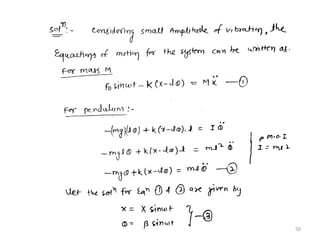 Solⁿ:- Considering small Amplitude of vibration, the
Equactions of motion for the system can be written as.
For mass M
F₀ sinωt − K(x−lθ) = Mẍ —①
For pendulum:-
−(mg)(lθ) + k(x−lθ).l = I θ̈
−mglθ + k(x−lθ).l = ml² θ̈
M.O.I
I = ml²
−mgθ + k(x−lθ) = mlθ̈ —②
Let the solⁿ for Eqⁿ ① & ② are given by
x = X sinωt
θ = β sinωt } —③
52